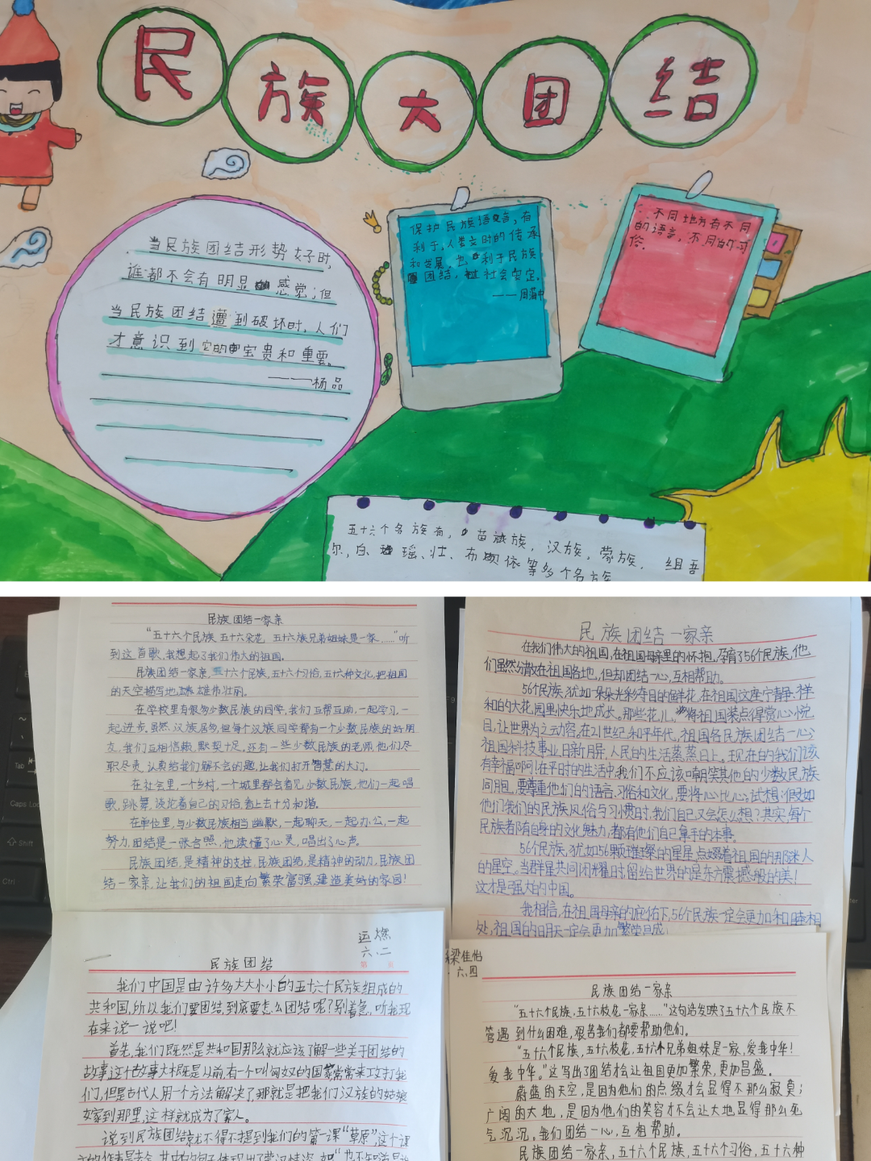 民族大团结
当民族团结形势好时,
谁都不会有明显感觉;但
当民族团结遭到破坏时,人们
才意识到它的宝贵和重要。
——杨品
保护民族语言,有
利于人类文明的传承
和发展,也利于民族
团结,社会安定。
不同地方有不同
的语言,不同的习
俗。
五十六个名族有,苗族,汉族,蒙族,
等多个名族
民族团结一家亲
“五十六个民族 五十六朵花 五十六族兄弟姐妹是一家……”听
到这首歌,我想起了我们伟大的祖国。
民族团结一家亲,五十六个民族,五十六个习俗,五十六种文化,把祖国
的天空描写地雄伟壮丽。
在学校里有很多少数民族的同学,我们互帮互助,一起学习,一
起进步,虽然汉族居多,但每个汉族同学都有一个少数民族的好朋
友,我们互相信赖,默契十足,还有一些少数民族的老师,他们尽
职尽责,认真给我们解不会的题,让我们打开智慧的大门。
在社会里,一个乡村,一个城里都会看见少数民族,他们一起唱
歌,跳舞,谈论着自己的习俗,看上去十分和谐。
在单位里,与少数民族相当幽默,一起聊天,一起办公,一起
努力,团结是一张合照,也读懂了心灵,唱出了心声。
民族团结,是精神的支柱,民族团结,是精神的动力,民族团
结一家亲,让我们的祖国走向繁荣富强,建造美好的家园!
民族团结一家亲
在我们伟大的祖国,在祖国母亲里的怀抱,孕育了56个民族,他
们虽然分散在祖国各地,但却团结一心,互相帮助。
56个民族,犹如一朵朵光彩夺目的鲜花,在祖国这座宁静、祥
和的大花园里快乐地成长。那些花儿,将祖国装点得赏心悦
目,让世界为之动容,在21世纪,和平年代,祖国各民族团结一心,
祖国科技事业日新月异,人民的生活蒸蒸日上。现在的我们应该
有幸福啊!在平时的生活中我们不应该嘲笑其他的少数民族
同胞,要尊重他们的语音、习俗和文化,要将心比心;试想:假如
他们我们的民族风俗与习惯时,我们自己又会怎么想?其实,每个
民族都有自身的文化魅力,都有他们自己拿手的本事。
56个民族,犹如56颗璀璨的星星点缀着祖国的那迷人
的星空。当群星共同闭耀时,留给世界的是东方震撼般的美!
这才是强大的中国。
我相信,在祖国母亲的庇佑下,56个民族一定会更加和睦相
处,祖国的明天一定会更加繁荣昌盛!
运燃
六、二
民族团结
我们中国是由许多大大小小的五十六个民族组成的
共和国,所以我们要团结,到底要怎么团结呢?别着急,听我现
在来说一说吧!
首先,我们既然是共和国那么就应该了解一些关于团结的
故事,这个故事大概是以前,有一个叫匈奴的国家常常来攻打我
们,但是古代人用一个方法解决了那就是把我们汉族的姑娘
嫁到那里,这样就成为了家人。
说到民族团结就不得不提到我们的第一课“草原”,这个课
梁佳怡
六、四
民族团结一家亲
“五十六个民族,五十六枝花一家亲……”这句话发映了五十六个民族不
管遇到什么困难,艰苦我们都要帮助他们。
“五十六个民族,五十六枝花,五十六个兄弟姐妹是一家,爱我中华!
爱我中华。”这写出了团结才会让祖国更加繁荣,更加昌盛。
蔚蓝的天空,是因为他们的点缀才会显得不那么寂寞;
广阔的大地,是因为他们的笑容才不会让大地显得那么死
气沉沉。我们团结一心,互相帮助。
民族团结一家亲,五十六个民族,五十六个习俗,五十六种